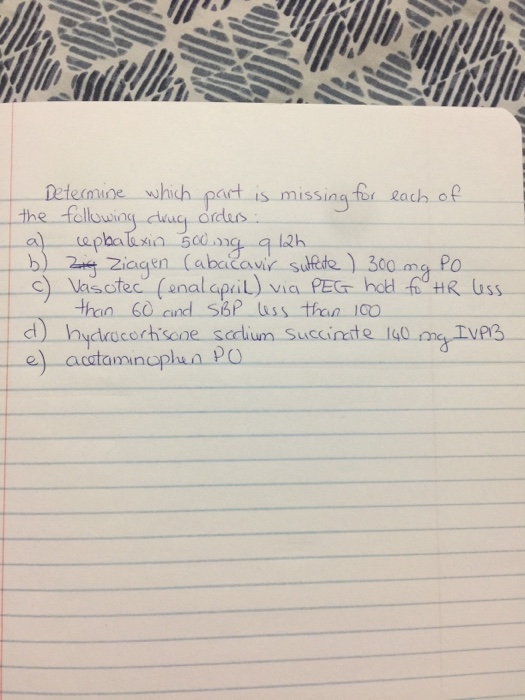 Determine which part is missing for each of
the following drug orders:
a) cephalexin 500 mg q 12h
b) Zig Ziagen (abacavir sulfate) 300 mg PO
c) Vasotec (enalapril) via PEG hold fo HR less
than 60 and SBP less than 100
d) hydrocortisone sodium succinate 140 mg IVPB
e) acetaminophen PO